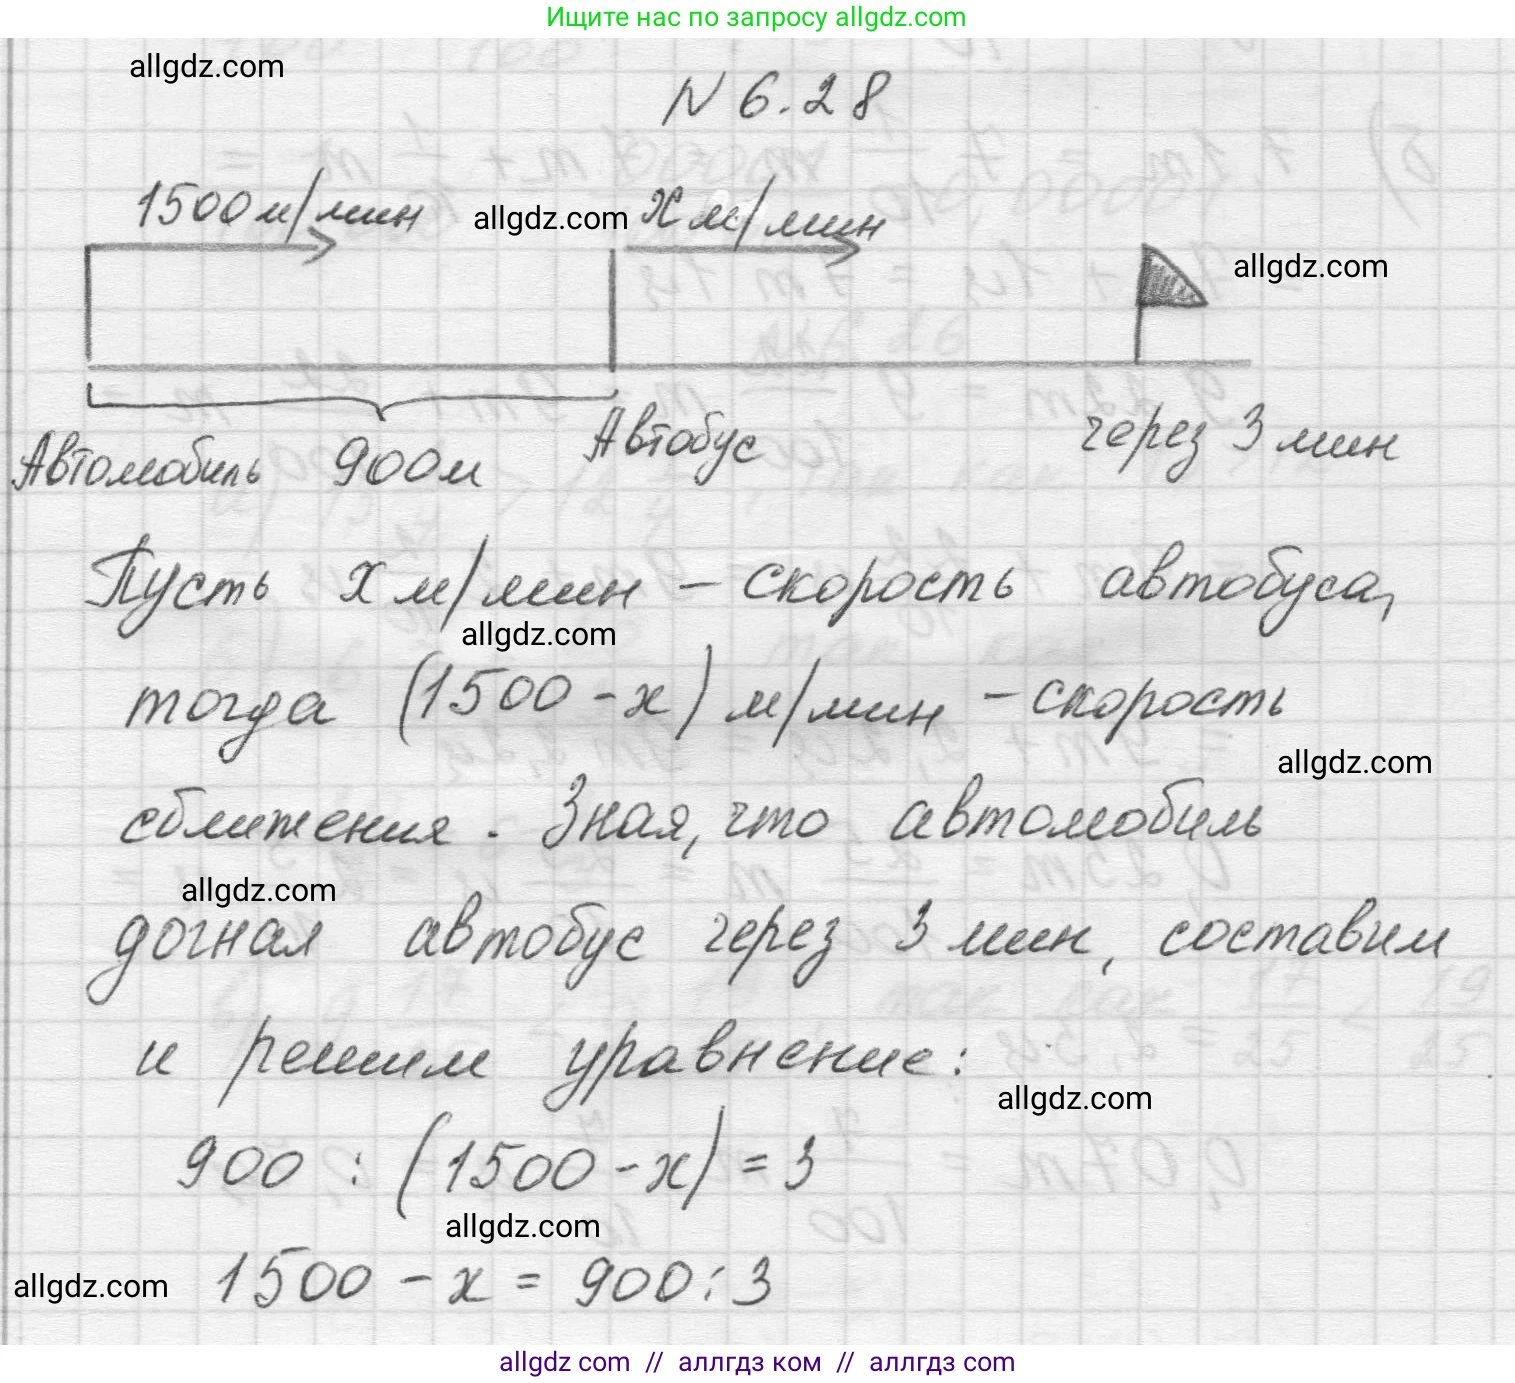 Ищите нас по запросу allgdz.com
allgdz.com
N 6.28
1500 м/мин
allgdz.com
x м/мин
allgdz.com
Автомобиль
900м
Автобус
через 3 мин
Пусть x м/мин – скорость автобуса,
allgdz.com
тогда (1500 - x) м/мин – скорость
allgdz.com
сближения. Зная, что автомобиль
allgdz.com
догнал автобус через 3 мин, составим
и решим уравнение:
allgdz.com
900 : (1500 - x) = 3
allgdz.com
allgdz.com
1500 - x = 900 : 3
allgdz com // аллгдз ком // allgdz.com